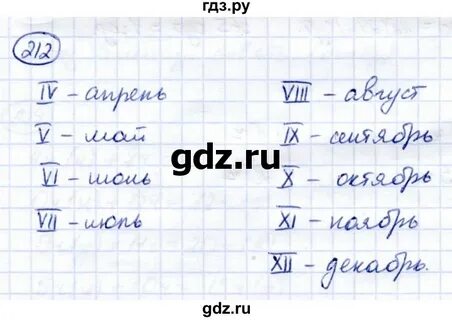 гдз.ру
212
IV – апрель
V – май
VI – июнь
VII – июль
VIII – август
IX – сентябрь
X – октябрь
XI – ноябрь
XII – декабрь.
gdz.ru
gdz.ru